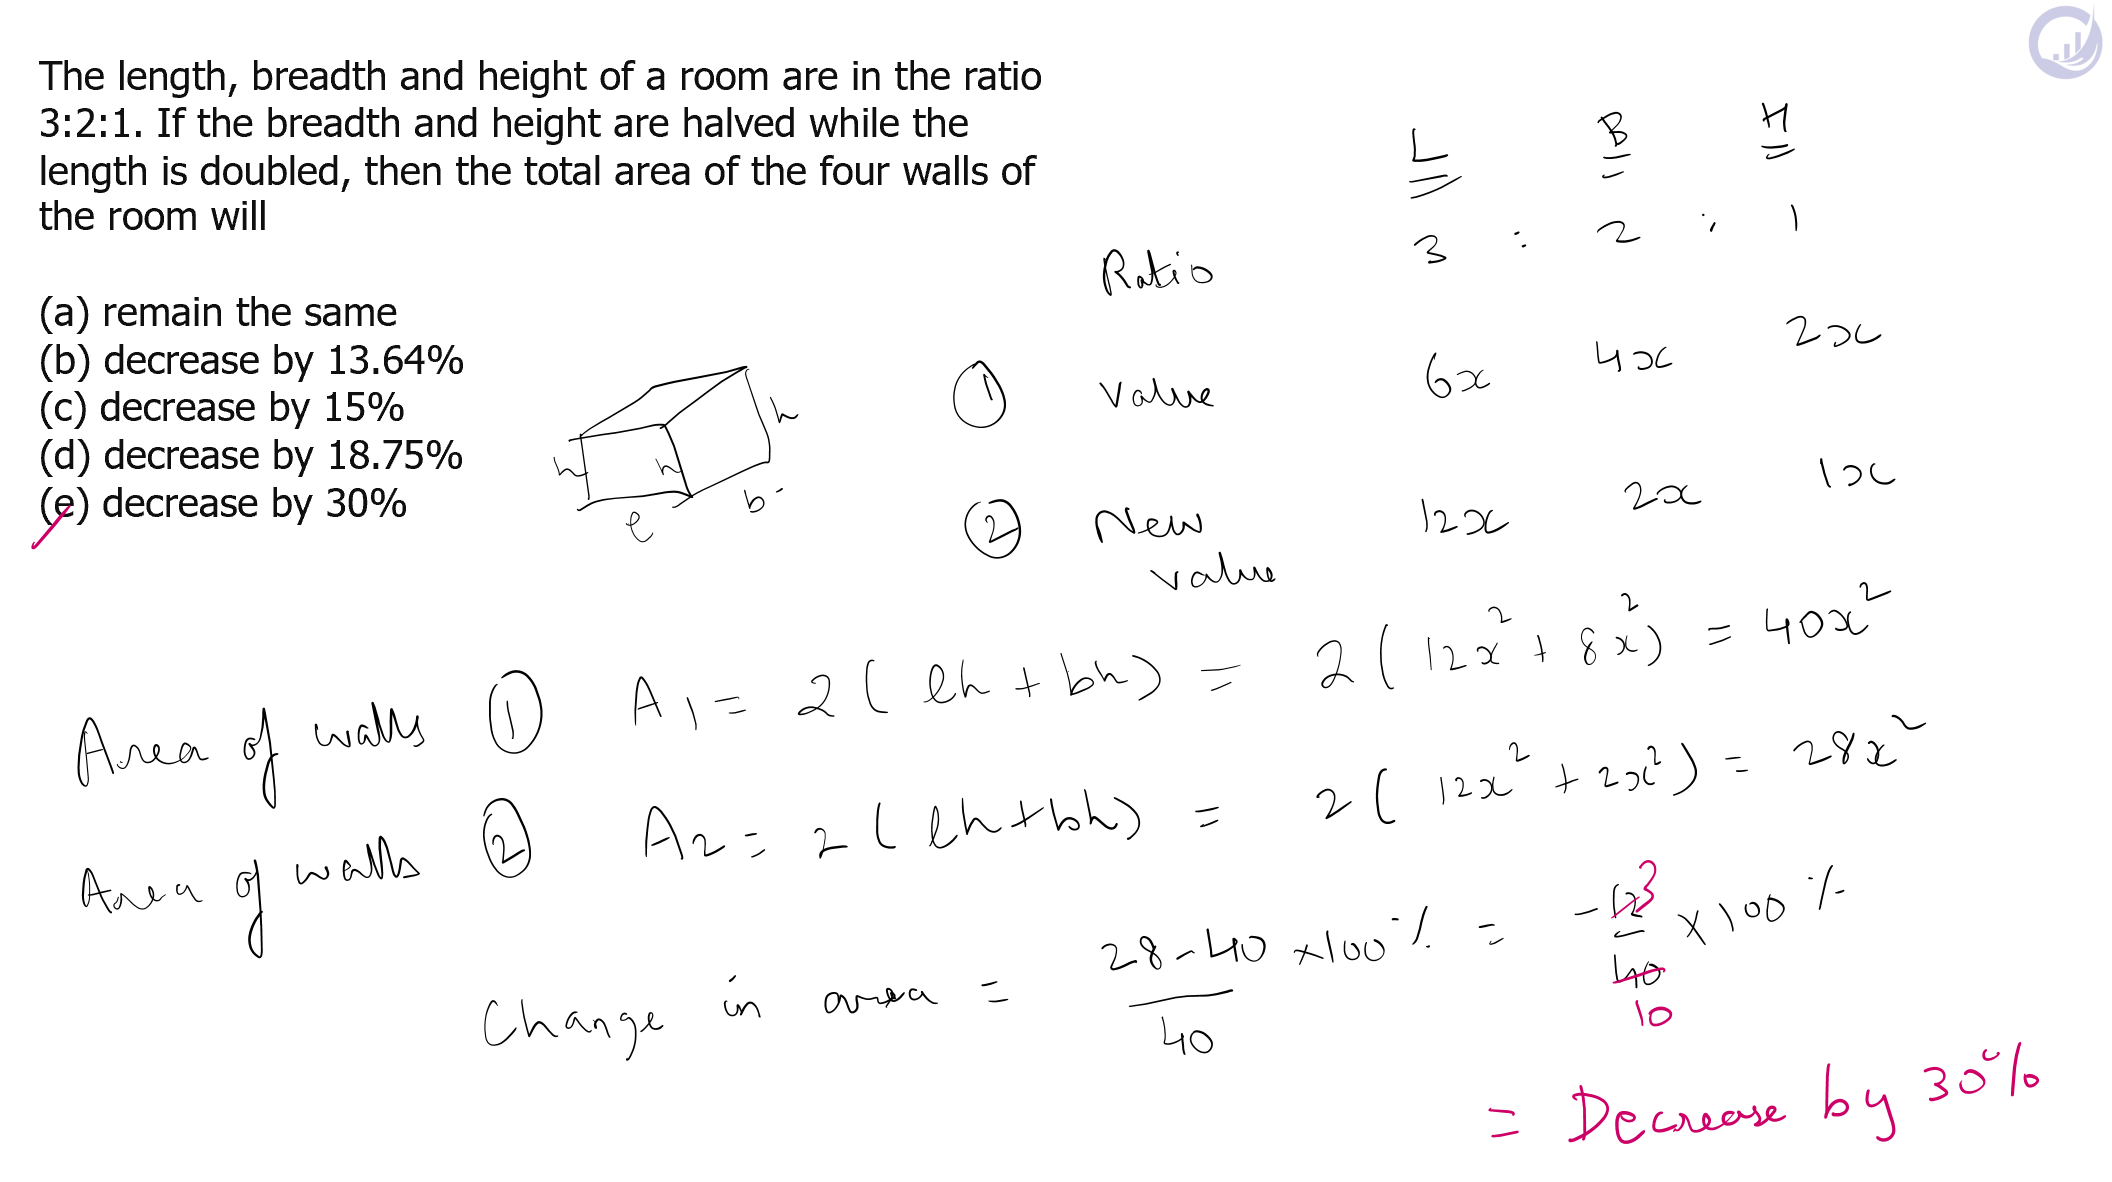 The length, breadth and height of a room are in the ratio
3:2:1. If the breadth and height are halved while the
length is doubled, then the total area of the four walls of
the room will
(a) remain the same
(b) decrease by 13.64%
(c) decrease by 15%
(d) decrease by 18.75%
(e) decrease by 30%
h h h
l b
L B H
Ratio 3 : 2 : 1
① Value 6x 4x 2x
② New value 12x 2x 1x
Area of walls ① A₁ = 2(lh + bh) = 2(12x² + 8x²) = 40x²
Area of walls ② A₂ = 2(lh + bh) = 2(12x² + 2x²) = 28x²
Change in area = 28-40/40 ×100% = -12/40 ×100%
3
10
= Decrease by 30%